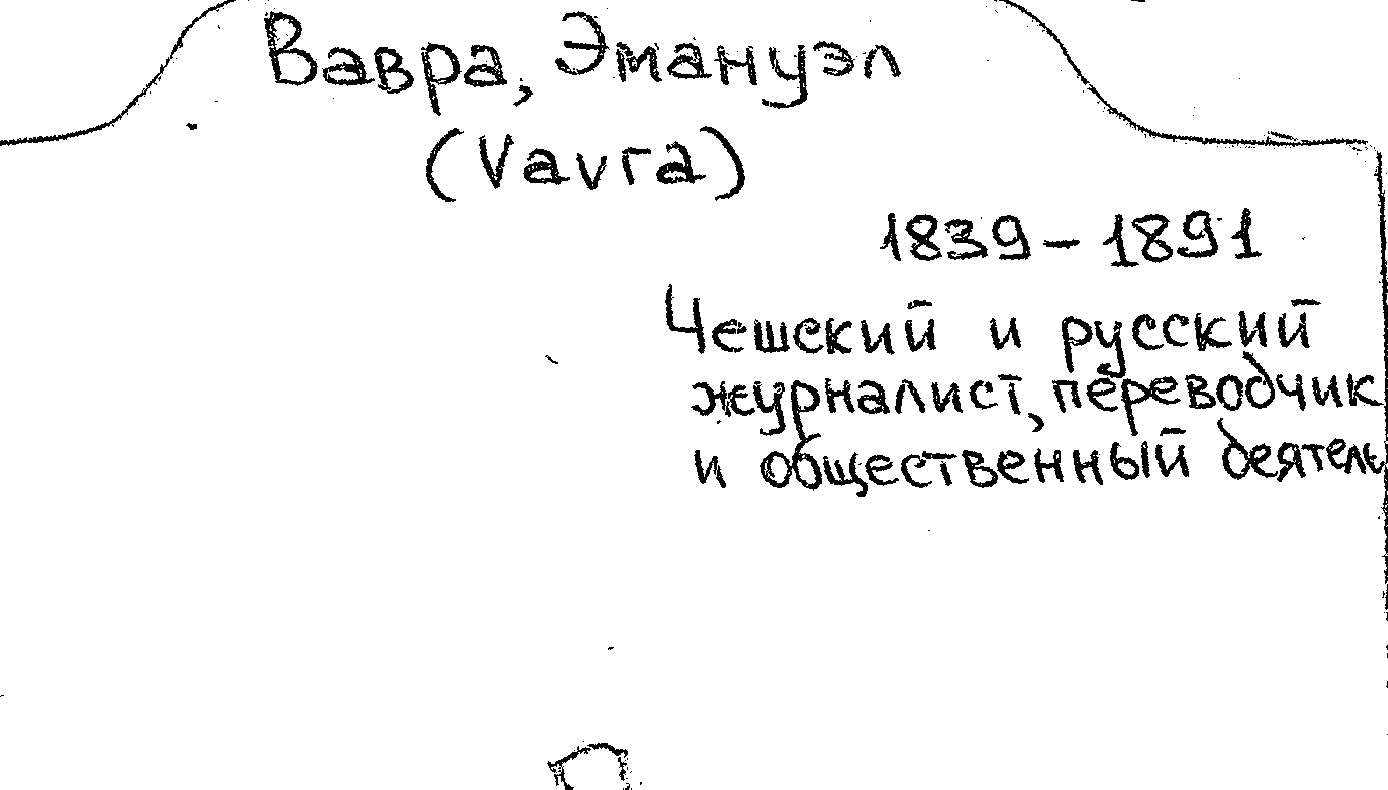 Вавра, Эмануэл
(Vavra)
1839 – 1891
Чешский и русский
журналист, переводчик
и общественный деятель